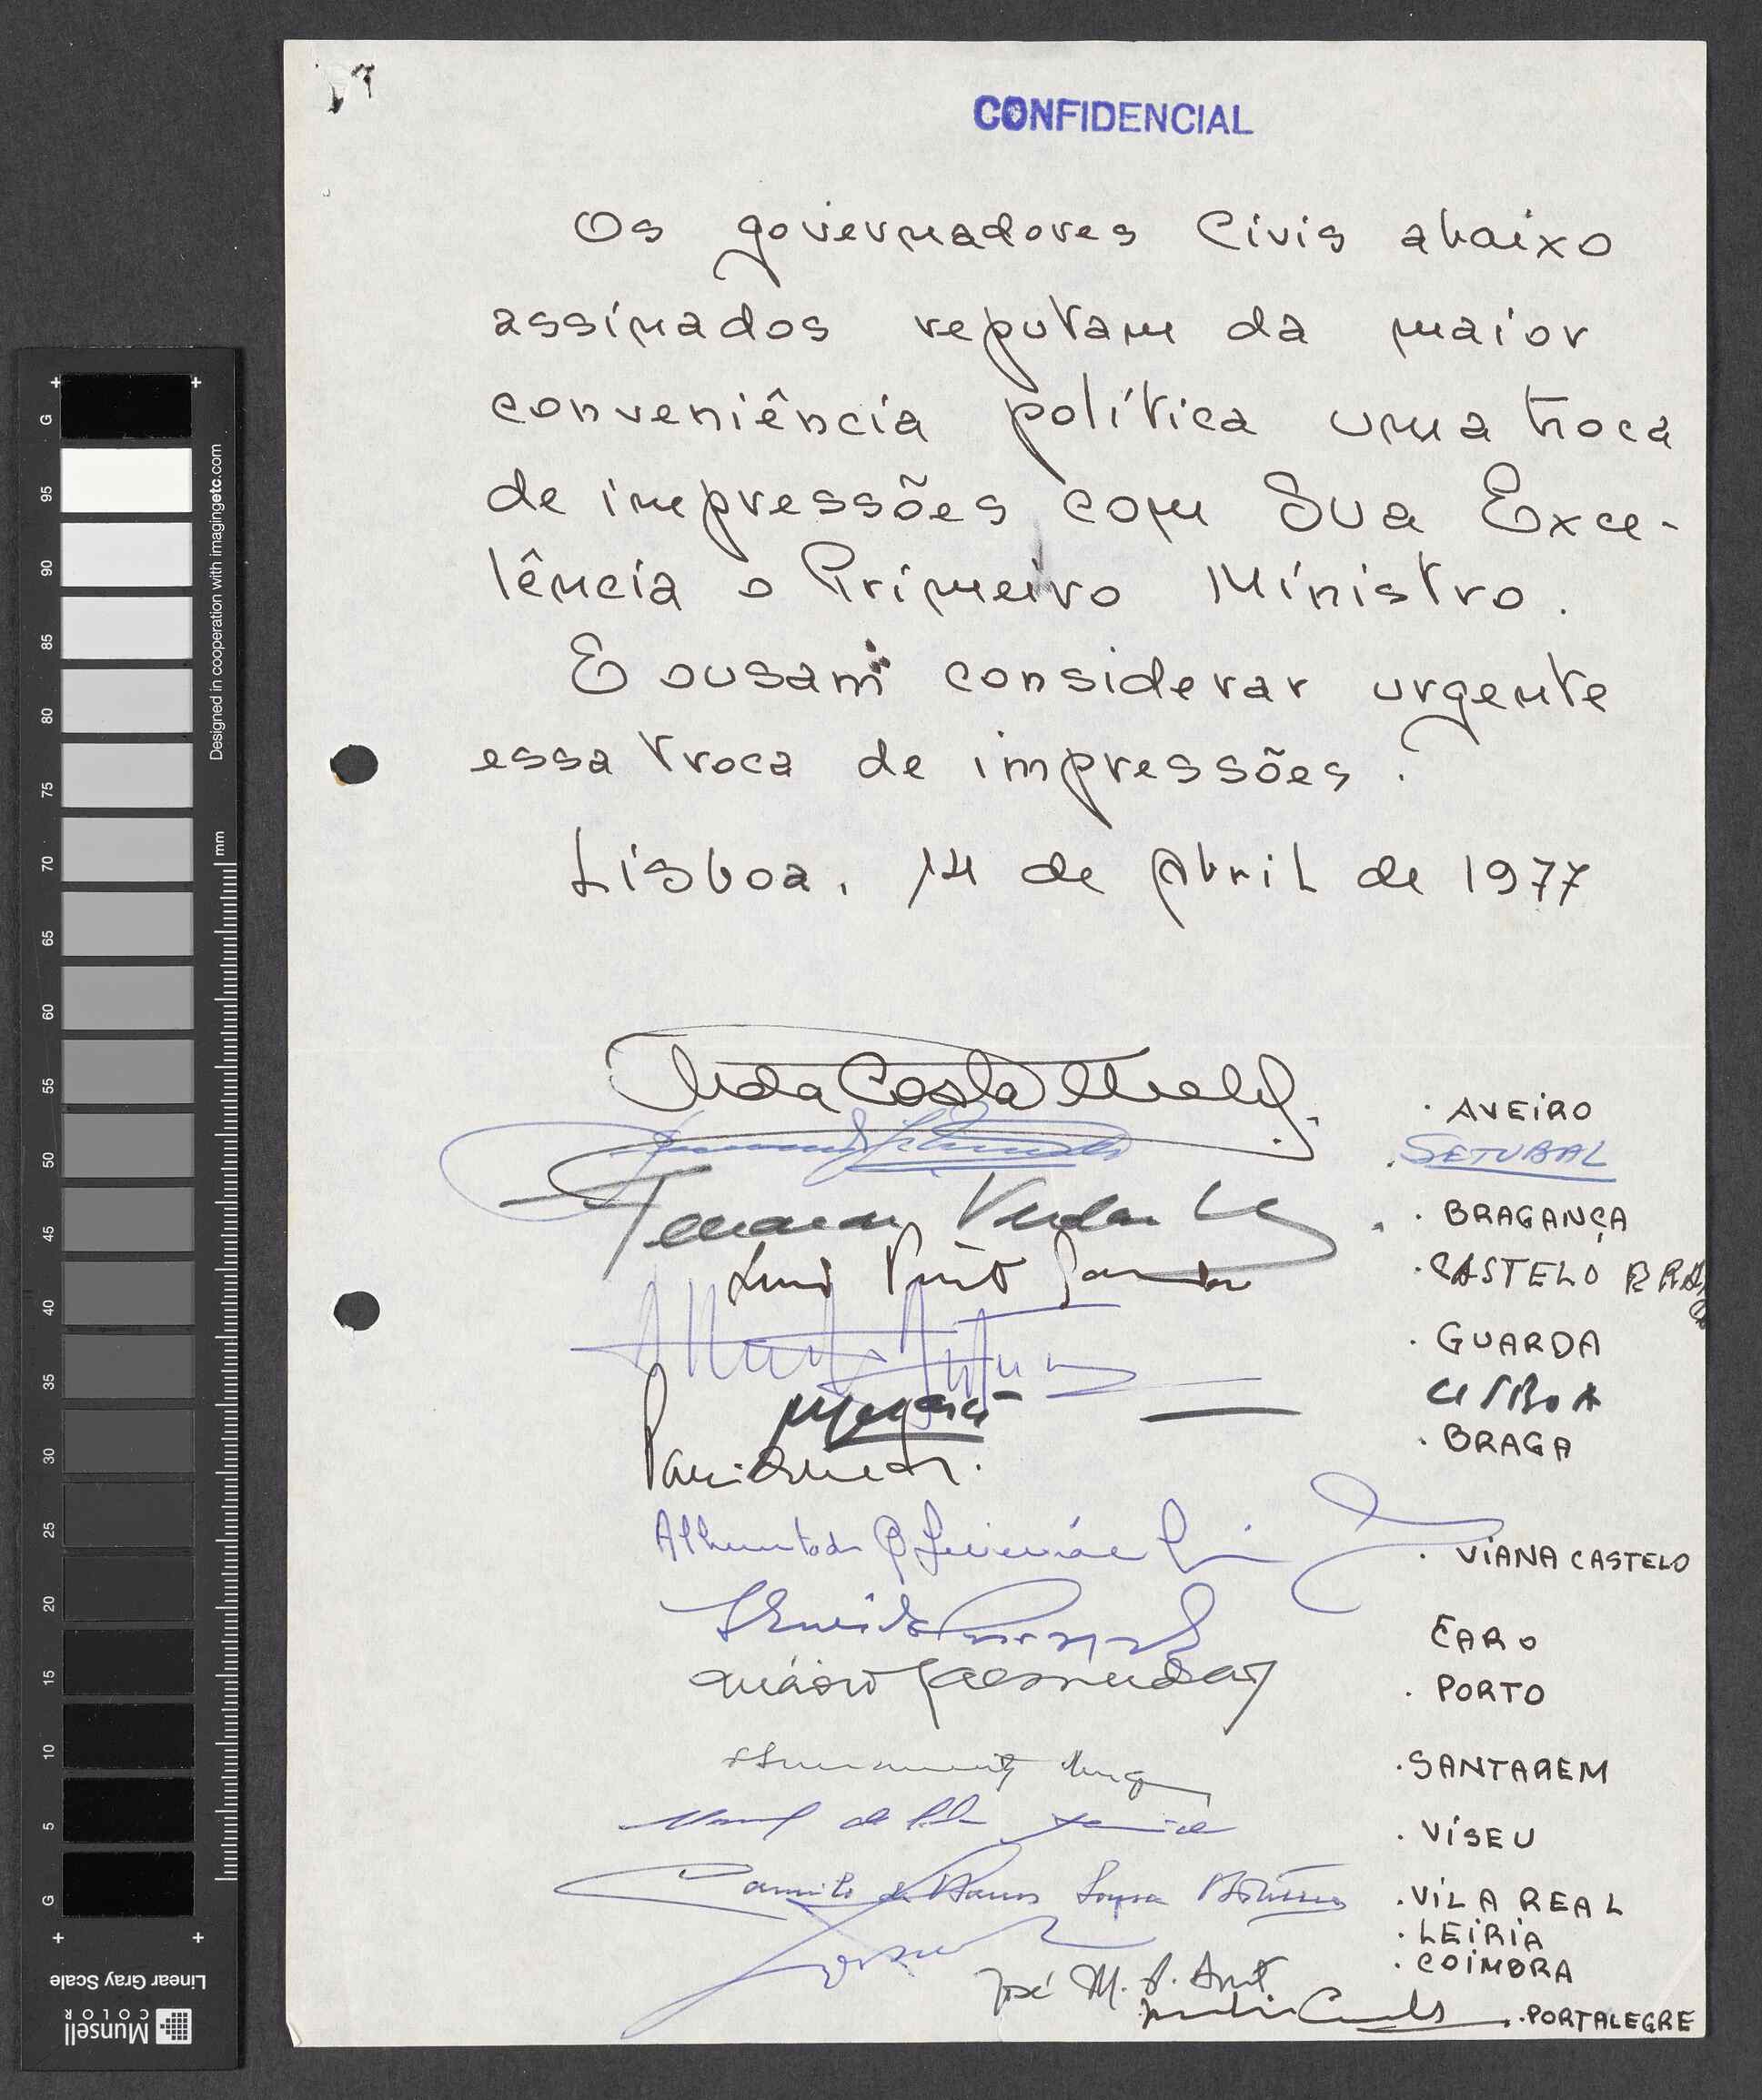 CONFIDENCIAL
Os governadores Civis abaixo
assinados reputam da maior
conveniência política uma troca
de impressões com Sua Exce-
lência o Primeiro Ministro.
E ousam considerar urgente
essa troca de impressões.
Lisboa, 14 de Abril de 1977
Costa
. AVEIRO
. SETUBAL
. BRAGANÇA
. CASTELO BRA
. GUARDA
LISBOA
. BRAGA
. VIANA CASTELO
FARO
. PORTO
. SANTAREM
. VISEU
Camilo de
. VILA REAL
. LEIRIA
José M.
. COIMBRA
. PORTALEGRE
G
95
90
85
80
75
70
65
60
55
50
45
40
35
30
25
20
15
10
5
G
Designed in cooperation with imagingetc.com
mm
Linear Gray Scale
Munsell
COLOR